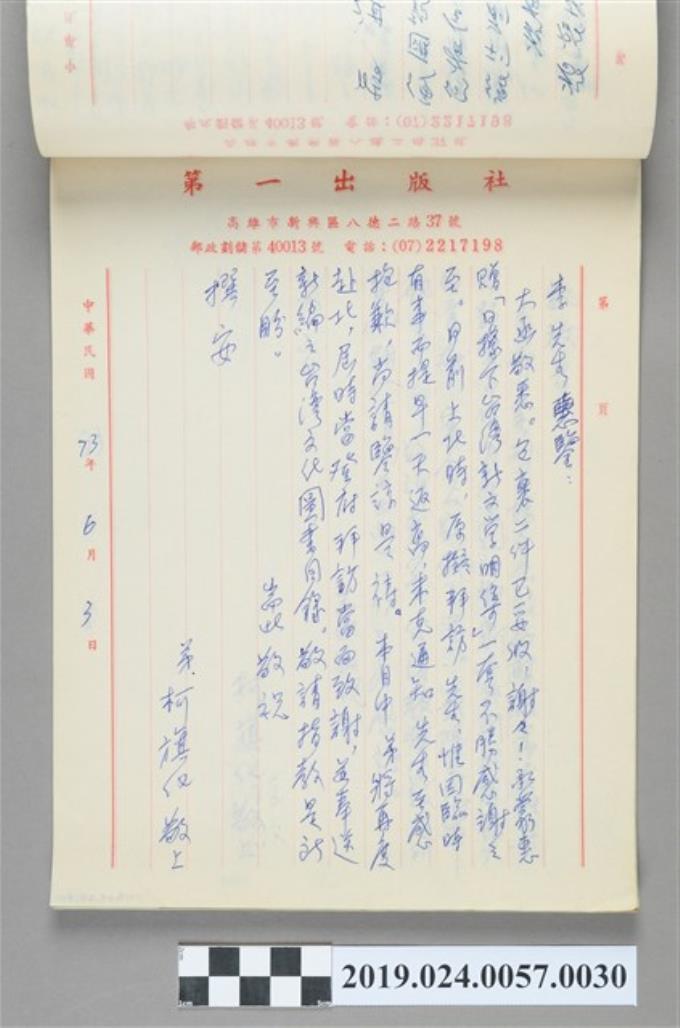 第一出版社
高雄市新興區八德二路37號
郵政劃儲第40013號 電話：(07)2217198
第 頁
李先生惠鑒：
大函敬悉。包裹二件已妥收，謝々！承蒙惠
贈「日據下台湾新文学明集」一套，不勝感謝之
至。日前上北時，原擬拜訪先生，惟因臨時
有事而提早一天返高，未克通知先生，至感
抱歉，尚請鑒諒是禱。本月中弟將再度
赴北，屆時當登府拜訪當面致謝，並奉送
新編之台湾文化圖書目錄，敬請指教是所
至盼。
耑此敬祝
撰安
弟柯旗化敬上
中華民國73年6月3日
2019.024.0057.0030